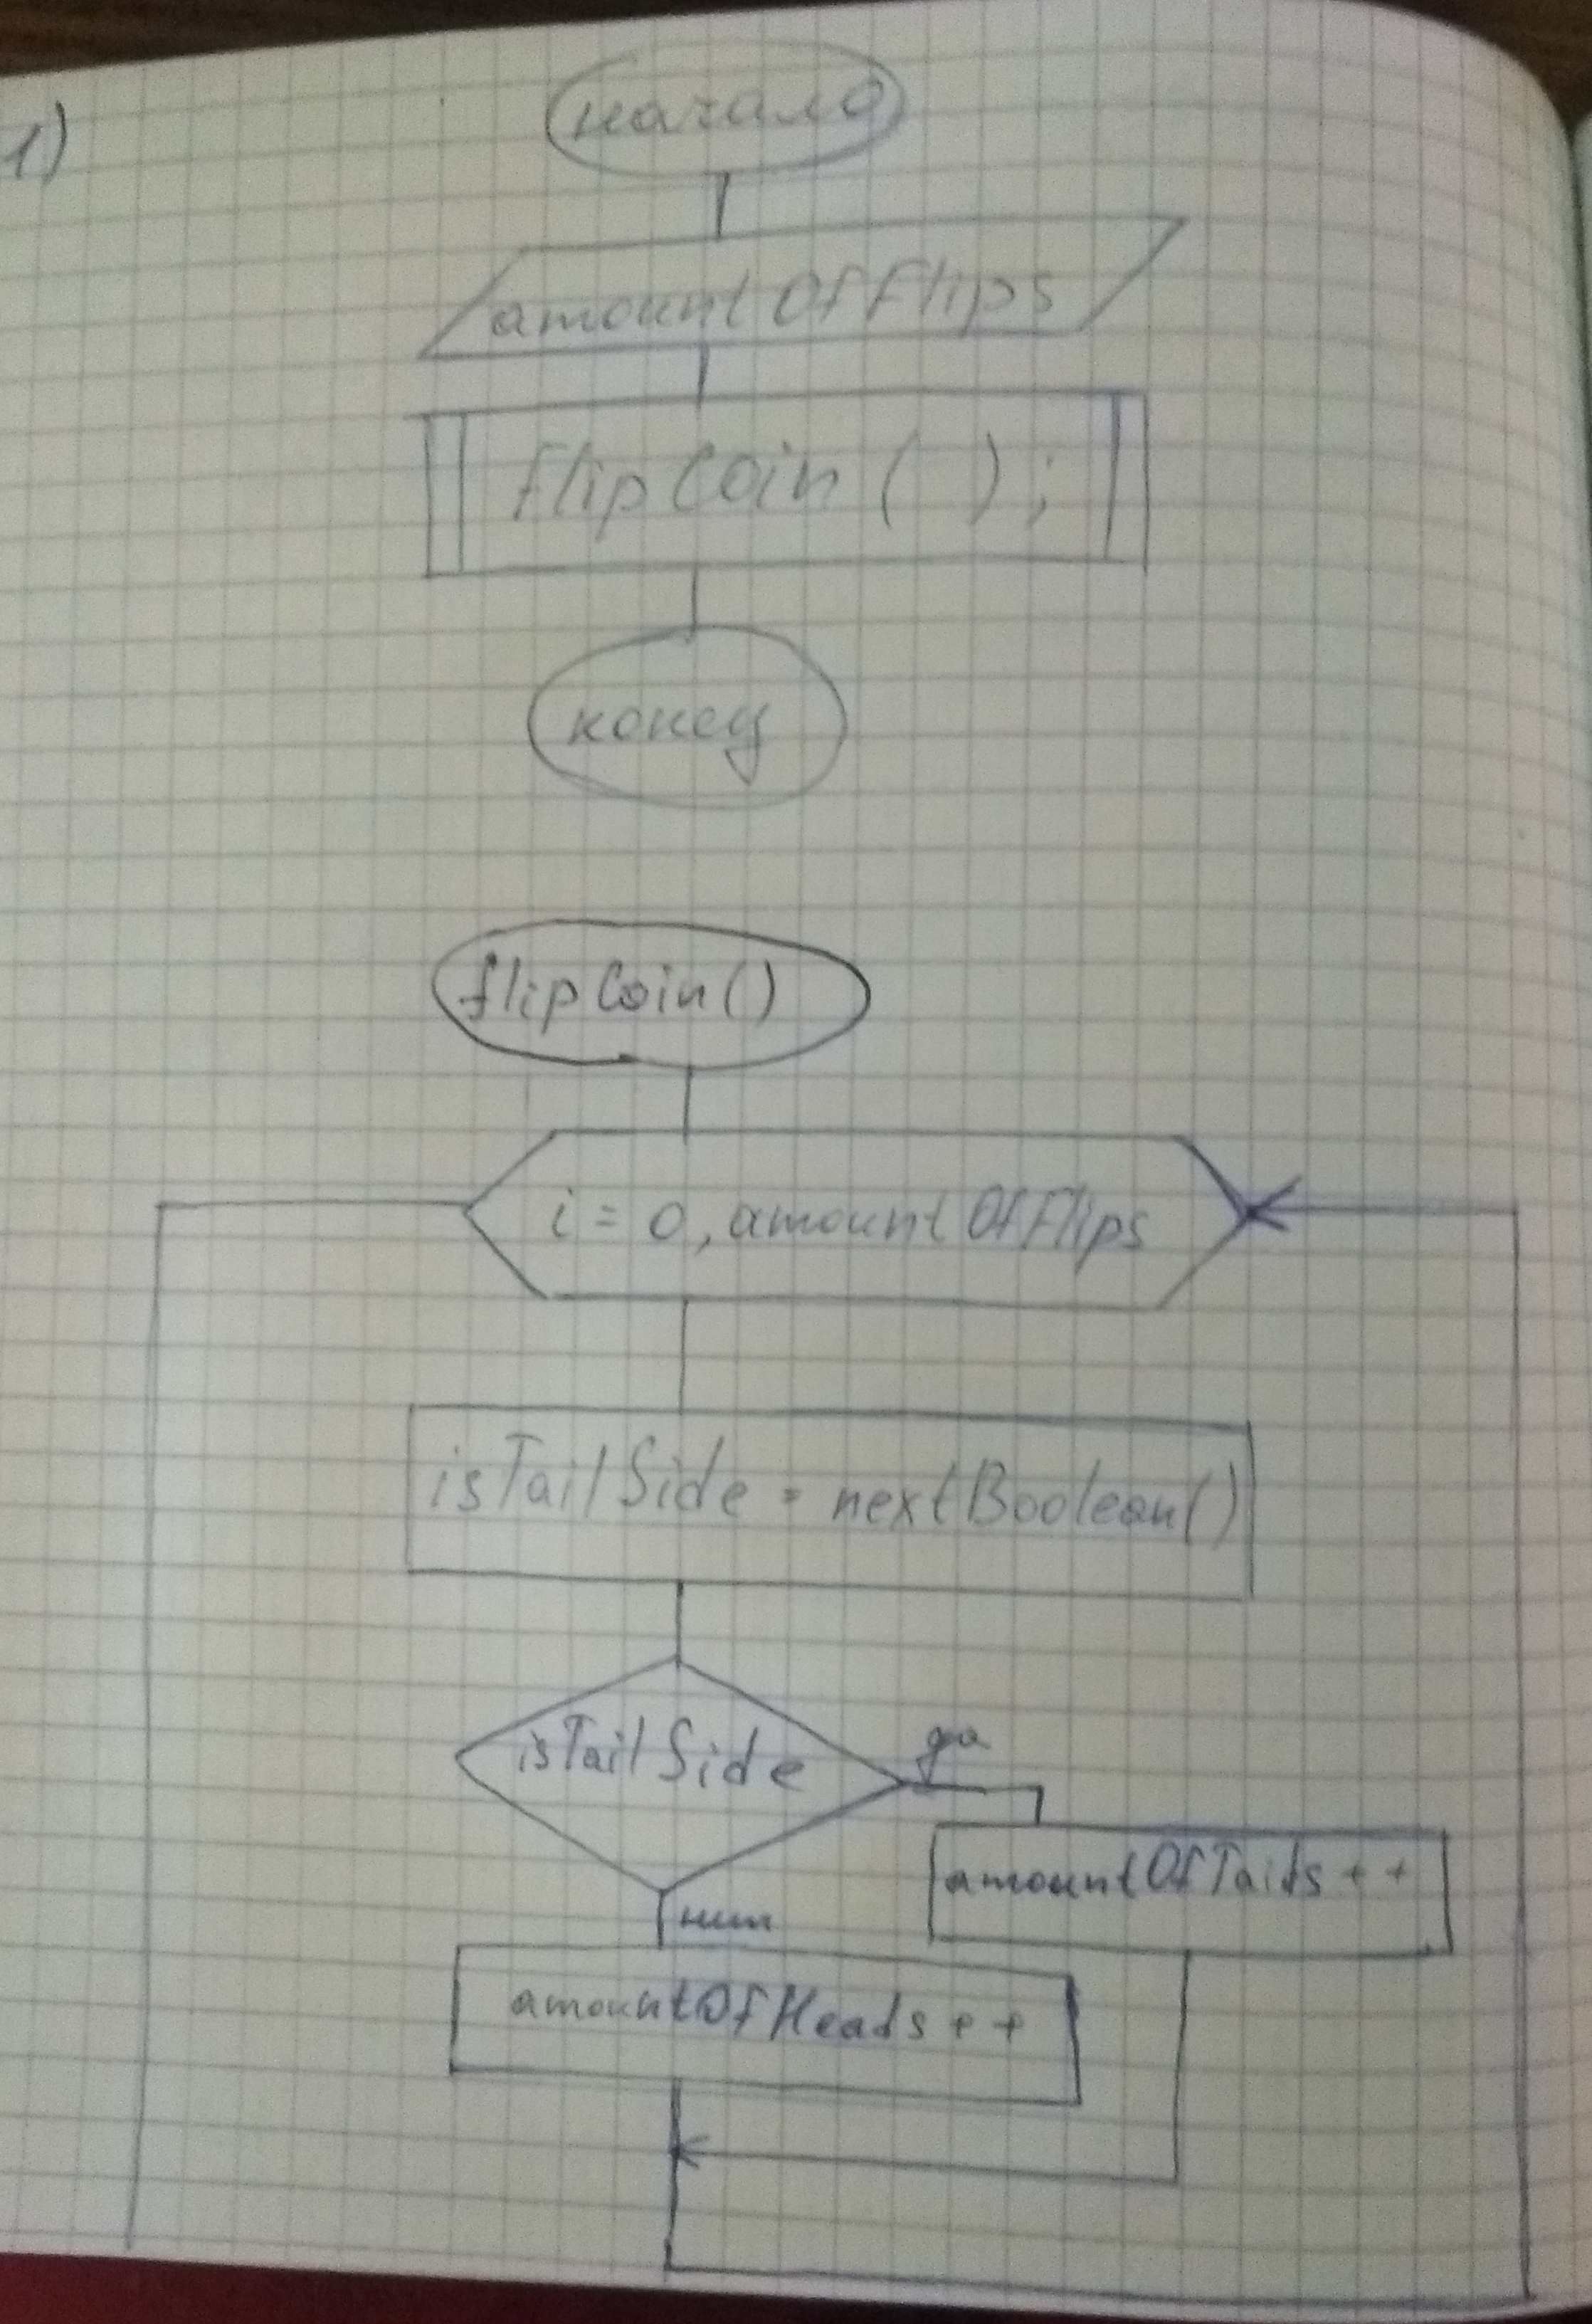 1)
начало
amountOfFlips
flipCoin( );
конец
flipCoin()
i = 0, amountOfFlips
isTailSide = nextBoolean()
isTailSide
да
amountOfTails++
нет
amountOfHeads++